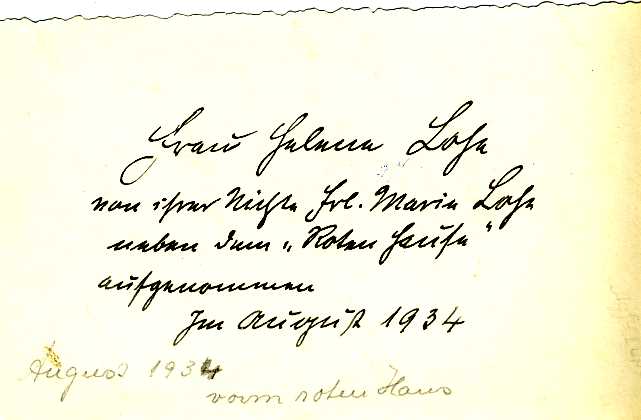 Frau Helene Lohe
von ihrer Nichte Frl. Marie Lohe
neben dem „Roten Hause"
aufgenommen
Im August 1934
August 1934
vorm roten Haus